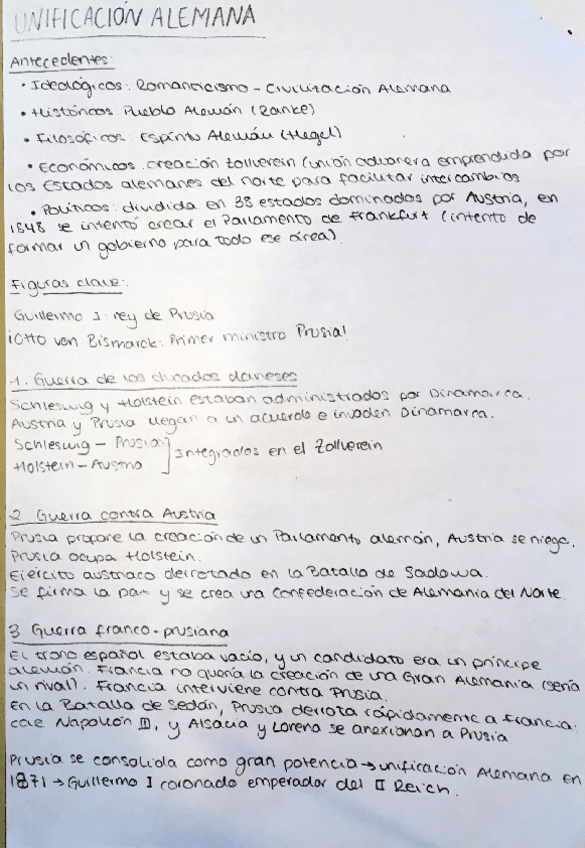 UNIFICACIÓN ALEMANA
Antecedentes:
• Ideológicos: Romanticismo - Civilización Alemana
• Históricos: Pueblo Alemán (Ranke)
• Filosóficos: Espíritu Alemán (Hegel)
• Económicos: creación Zollverein (unión aduanera emprendida por
los Estados alemanes del norte para facilitar intercambios
• Políticos: dividida en 38 estados dominados por Austria, en
1848 se intentó crear el Parlamento de Frankfurt (intento de
formar un gobierno para todo ese área).
Figuras clave:
Guillermo I: rey de Prusia
¡Otto von Bismarck: Primer ministro Prusia!
1. Guerra de los ducados daneses
Schleswig y Holstein estaban administrados por Dinamarca.
Austria y Prusia llegan a un acuerdo e invaden Dinamarca.
Schleswig - Prusia
Holstein - Austria ] Integrados en el Zollverein
2 Guerra contra Austria
Prusia propone la creación de un Parlamento alemán, Austria se niega.
Prusia ocupa Holstein.
Ejército austriaco derrotado en la Batalla de Sadowa.
Se firma la paz y se crea una Confederación de Alemania del Norte.
3 Guerra franco-prusiana
El trono español estaba vacío, y un candidato era un príncipe
alemán. Francia no quería la creación de una Gran Alemania (sería
un rival). Francia interviene contra Prusia.
En la Batalla de Sedán, Prusia derrota rápidamente a Francia:
cae Napoleón III, y Alsacia y Lorena se anexionan a Prusia
Prusia se consolida como gran potencia → unificación Alemana en
1871 → Guillermo I coronado emperador del II Reich.